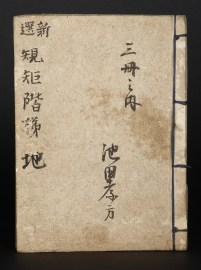 新
選
規矩階梯 地
三冊之内
池田孝方